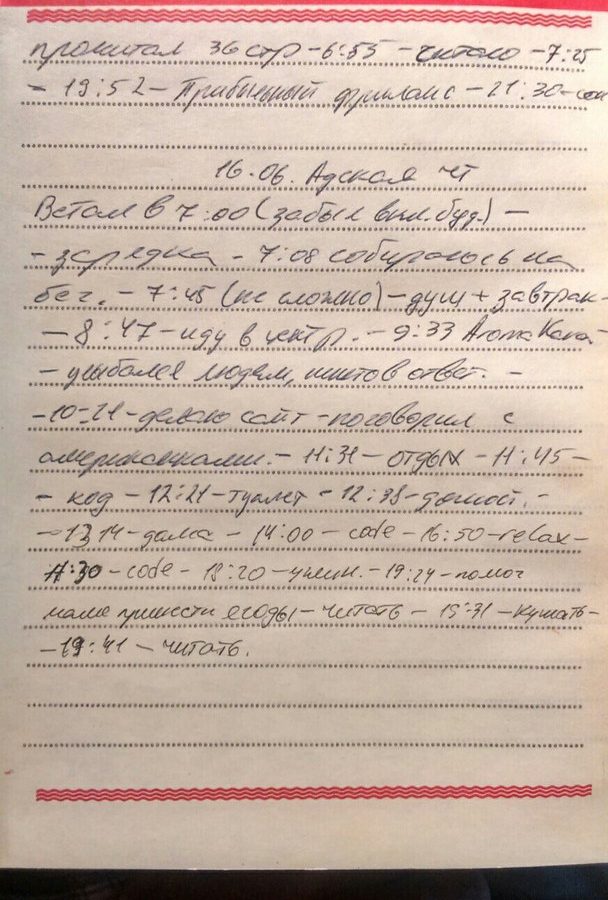 прочитал 36 стр - 6:55 - читаю - 7:25
- 19:52 - Прибыльный фриланс - 21:30 - сон
16.06. Адская чт
Встал в 7:00 (забыл вкл. буд.) -
- зарядка - 7:08 собираюсь на
бег. - 7:45 (не сложно) - душ + завтрак -
- 8:47 - иду в центр. - 9:33 Aroma Kava -
- улыбался людям, никто в ответ. -
- 10:21 - делаю сайт - поговорил с
американками. - 11:31 - отдых - 11:45 -
- код - 12:21 - туалет - 12:38 -
- 13:14 - дома - 14:00 - code - 16:50 - relax -
17:30 - code - 18:20 - ужин. - 19:24 - помог
маме принести ягоды - читать - 19:31 - кушать -
- 19:41 - читать.